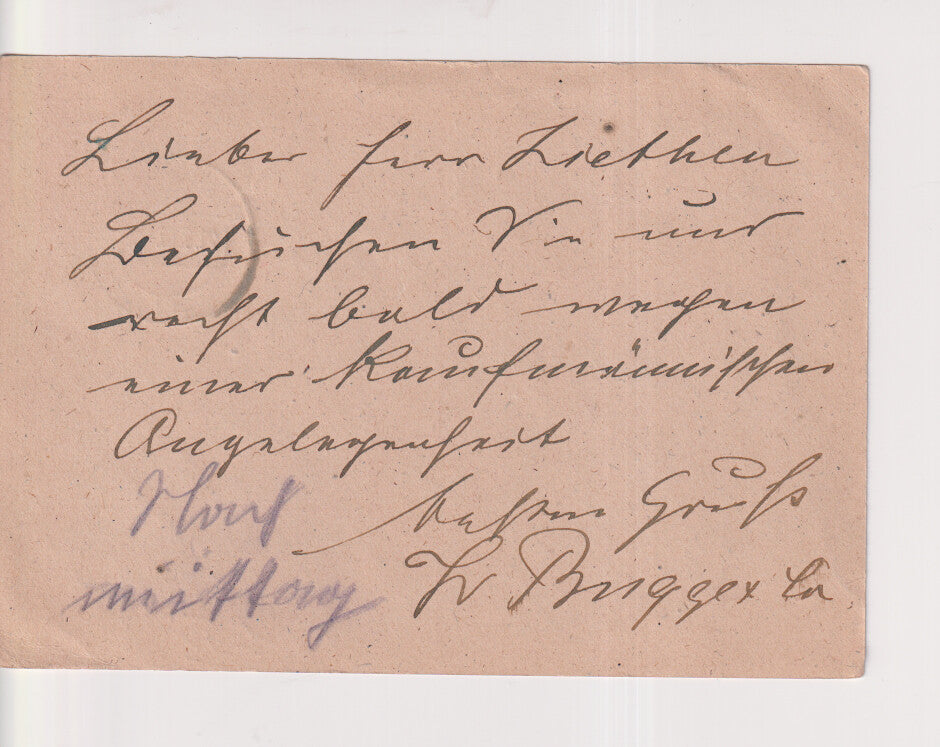 Lieber Herr Ziethen
Besuchen Sie uns
recht bald wegen
einer kaufmännischen
Angelegenheit
besten Gruß
Brügger Co
Nach
mittag